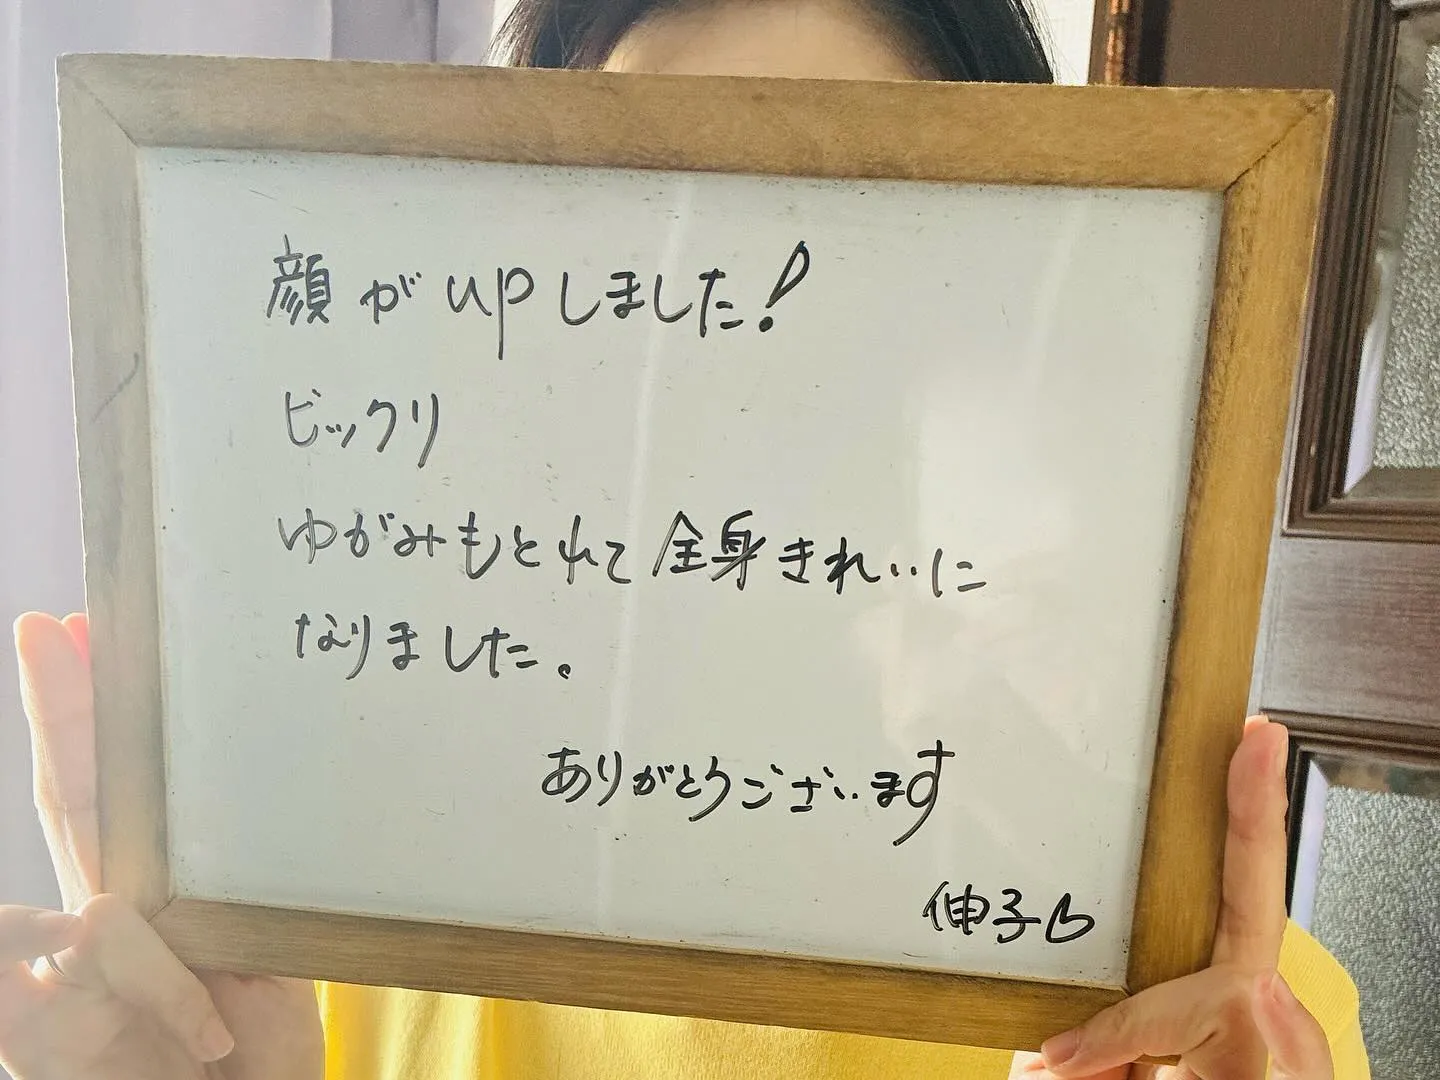 顔がupしました!
ビックリ
ゆがみもとれて全身きれいに
なりました。
ありがとうございます
伸子♡